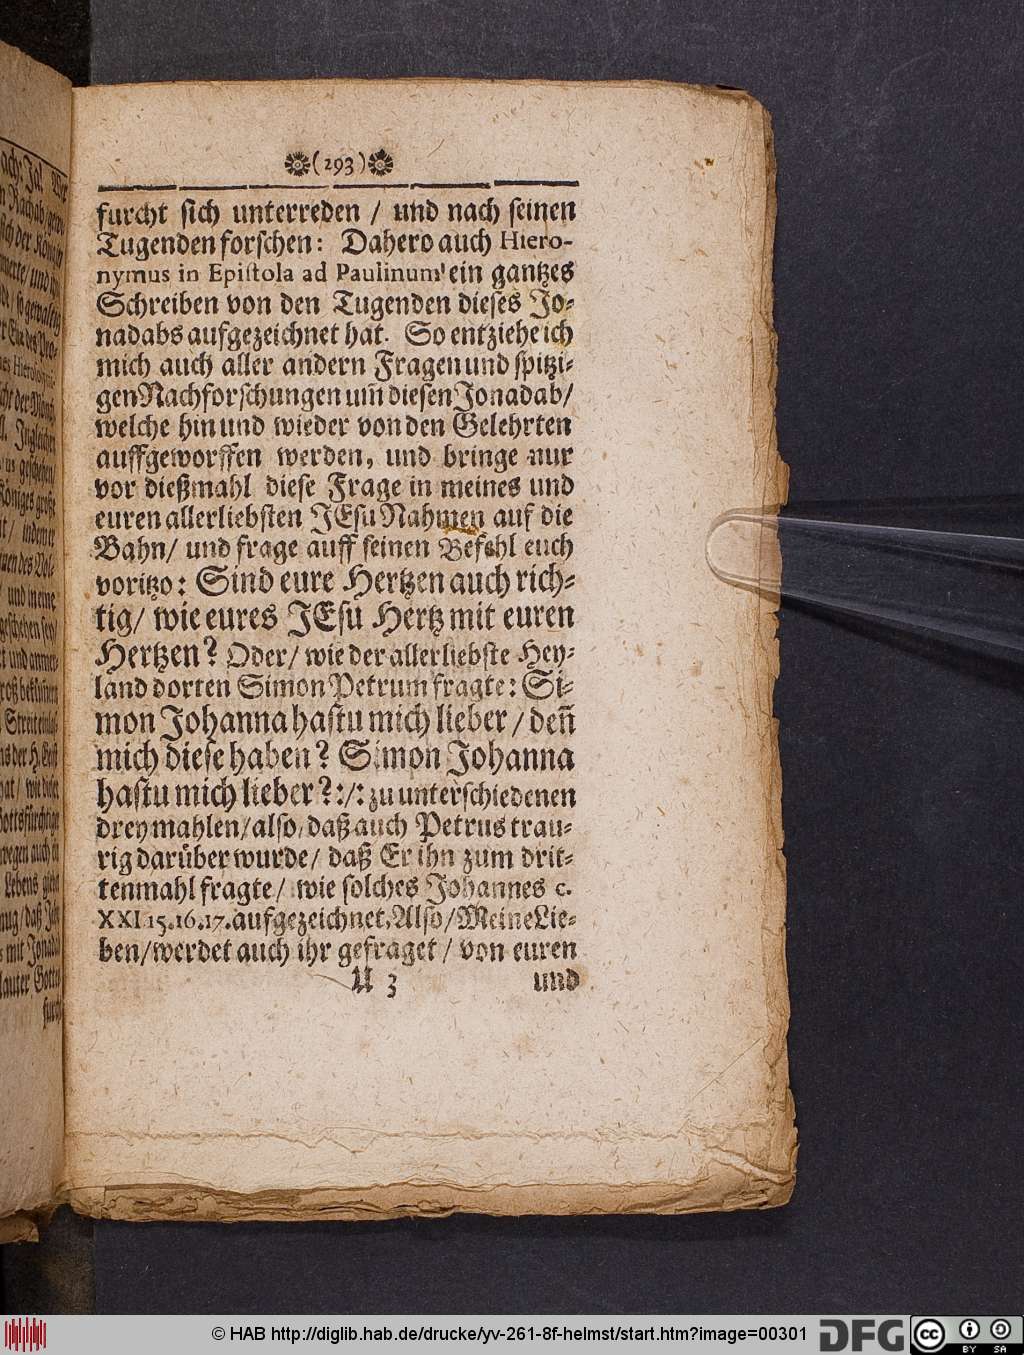 (293)
furcht sich unterreden / und nach seinen
Tugenden forschen: Dahero auch Hiero-
nymus in Epistola ad Paulinum ein gantzes
Schreiben von den Tugenden dieses Jo-
nadabs aufgezeichnet hat. So entziehe ich
mich auch aller andern Fragen und spitzi-
gen Nachforschungen um̃ diesen Jonadab /
welche hin und wieder von den Gelehrten
auffgeworffen werden, und bringe nur
vor dießmahl diese Frage in meines und
euren allerliebsten JEsu Nahmen auf die
Bahn / und frage auff seinen Befehl euch
voritzo: Sind eure Hertzen auch rich-
tig / wie eures JEsu Hertz mit euren
Hertzen? Oder / wie der allerliebste Hey-
land dorten Simon Petrum fragte: Si-
mon Johanna hastu mich lieber / deñ
mich diese haben? Simon Johanna
hastu mich lieber? :/: zu unterschiedenen
drey mahlen / also, daß auch Petrus trau-
rig darüber wurde / daß Er ihn zum drit-
tenmahl fragte / wie solches Johannes c.
XXI 15.16.17. aufgezeichnet. Also / Meine Lie-
ben / werdet auch ihr gefraget / von euren
U 3 und
© HAB http://diglib.hab.de/drucke/yv-261-8f-helmst/start.htm?image=00301 DFG cc BY SA